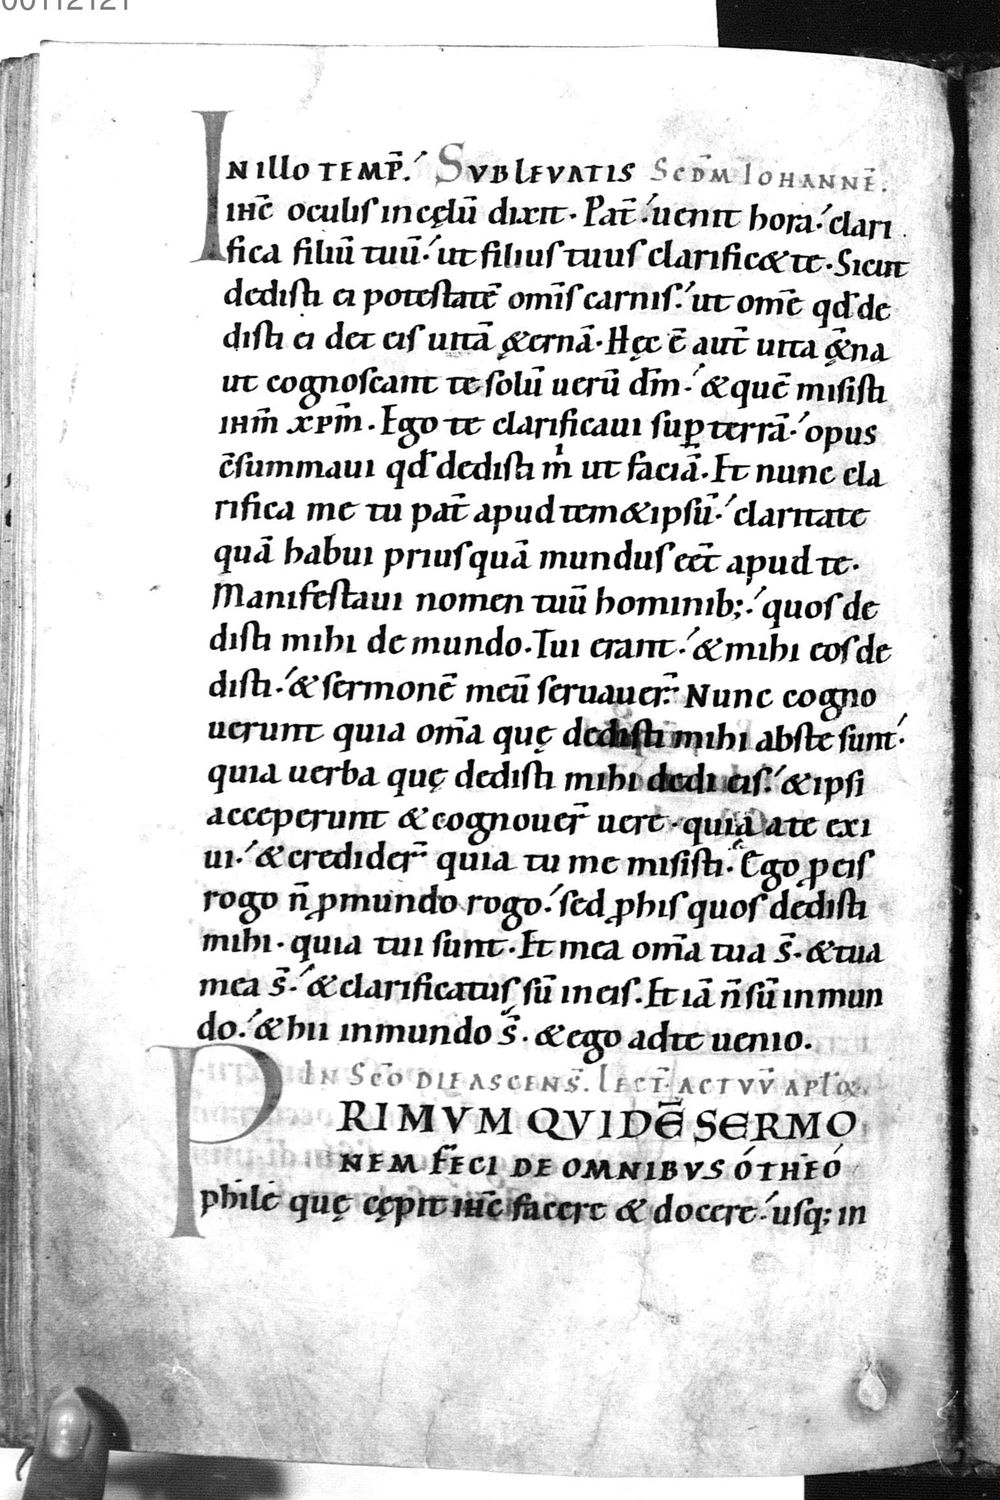 00112121
IN ILLO TEMP̄. SVBLEVATIS SCD̄M IOHANNĒ.
ih̄c oculis in cęlū dixit. Pat̄ uenit hora. clari
fica filiū tuū. ut filius tuus clarific& te. Sicut
dedisti ei potestatē om̄is carnis. ut om̄e qd̄ de
disti ei det eis uitā &ernā. Hęc ē aut̄ uita &̄na
ut cognoscant te solū uerū dm̄. & quē misisti
ihm̄ xpm̄. Ego te clarificaui sup terrā. opus
c̄summaui qd̄ dedisti m̄ ut faciā. Et nunc cla
rifica me tu pat̄ apud tem&ipsū. claritate
quā habui priusquā mundus eēt apud te.
Manifestaui nomen tuū hominib; quos de
disti mihi de mundo. Tui erant. & mihi eos de
disti. & sermonē meū seruauer̄. Nunc cogno
uerunt quia om̄a quę dedisti mihi abs te sunt.
quia uerba quę dedisti mihi dedi eis. & ipsi
acceperunt & cognouer̄ uere. quia a te exi
ui. & credider̄ quia tu me misisti. Ego p eis
rogo n̄ p mundo rogo. sed p his quos dedisti
mihi. quia tui sunt. Et mea om̄a tua s̄. & tua
mea s̄. & clarificatus sū in eis. Et iā n̄ sū in mun
do. & hii in mundo s̄. & ego ad te uenio.
IN SCŌ DIE ASCENS̄. LECT̄. ACTVV̄ APL̄OR̄.
PRIMVM QVIDĒ SERMO
NEM FECI DE OMNIBVS Ó THEÓ
phile quę cępit ih̄c facere & docere. usq; in